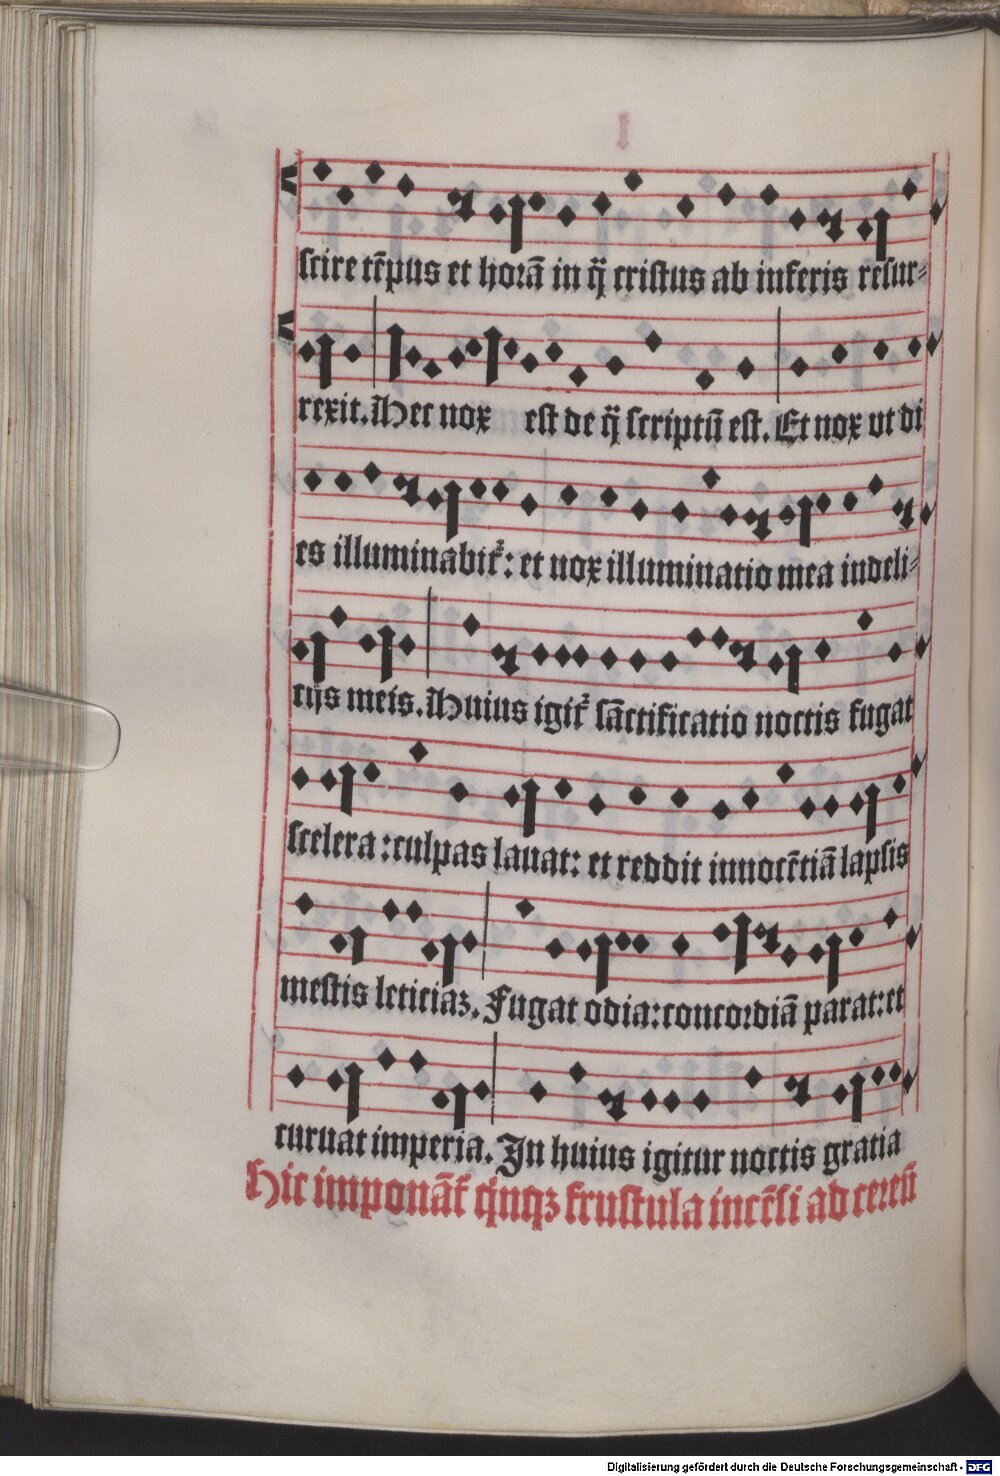 scire tēpus et horā in q̄ cristus ab inferis resur⸗
rexit. Hec nox est de q̄ scriptū est. Et nox ut di
es illuminabit᷑: et nox illuminatio mea in deli⸗
cijs meis. Huius igit᷑ sāctificatio noctis fugat
scelera: culpas lauat: et reddit innocētiā lapsis
mestis leticiaz. Fugat odia: concordiā parat: et
curuat imperia. In huius igitur noctis gratia
Hic imponāt᷑ q̇nqz frustula incēsi ad cereū
Digitalisierung gefördert durch die Deutsche Forschungsgemeinschaft - DFG